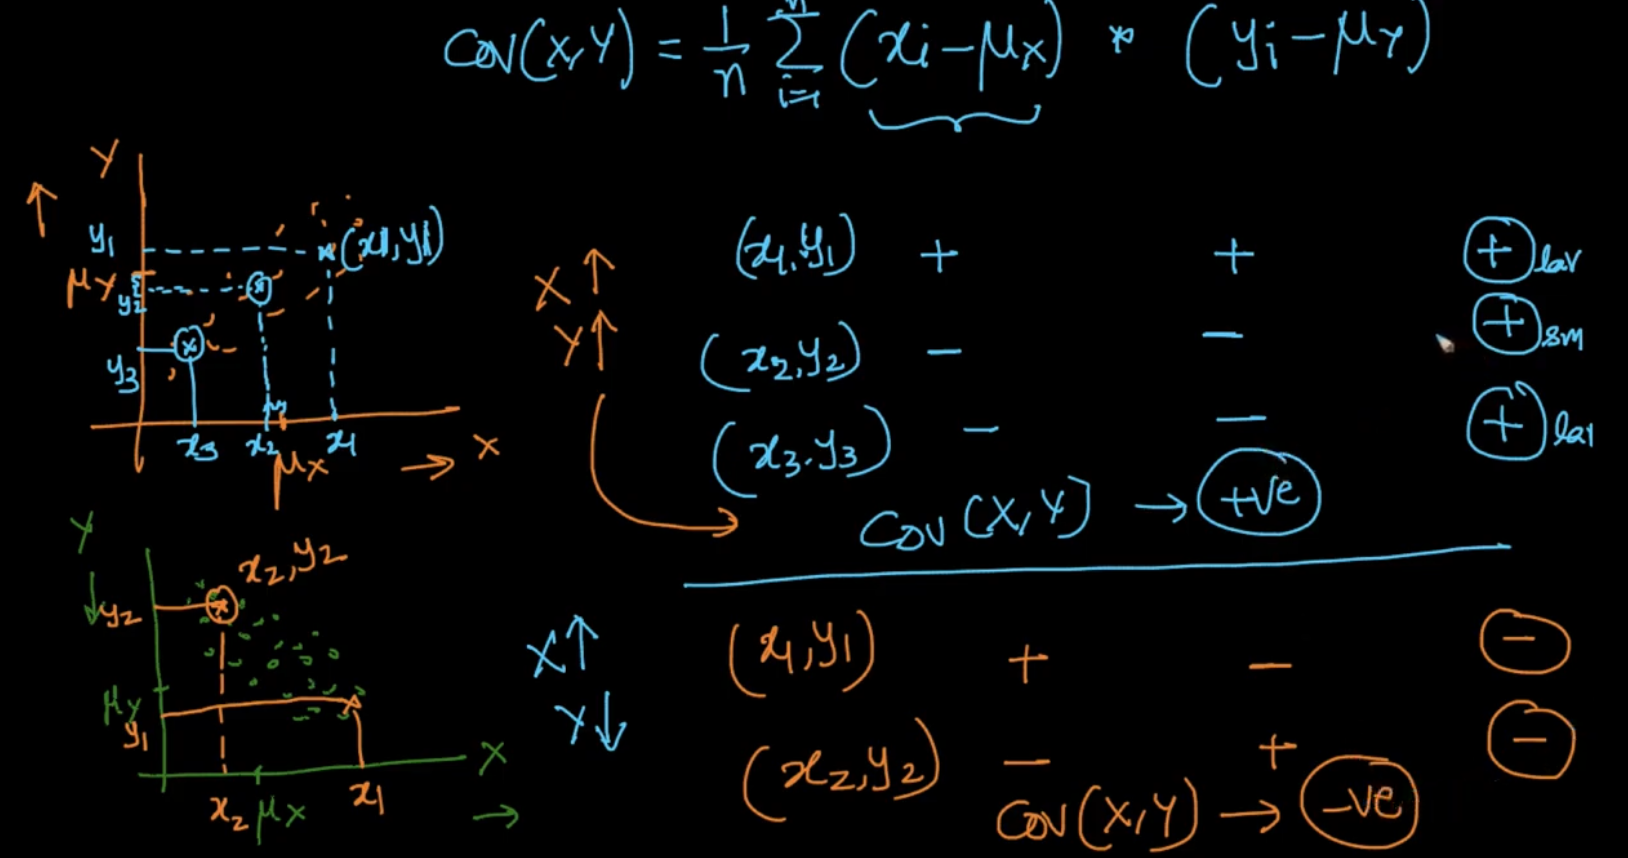 Cov(X,Y) = 1/n n∑i=1 (xi-μx) * (yi-μY)
Y
y1
(x1,y1)
μY
y2
y3
x3 x2 x1
μx
X
X↑
Y↑
(x1,y1) + + + lar
(x2,y2) - - + sm
(x3,y3) - - + lar
Cov(X,Y) → +ve
Y
x2,y2
y2
μy
y1
x2 μx x1
X
X↑
Y↓
(x1,y1) + - -
(x2,y2) - + -
Cov(X,Y) → -ve